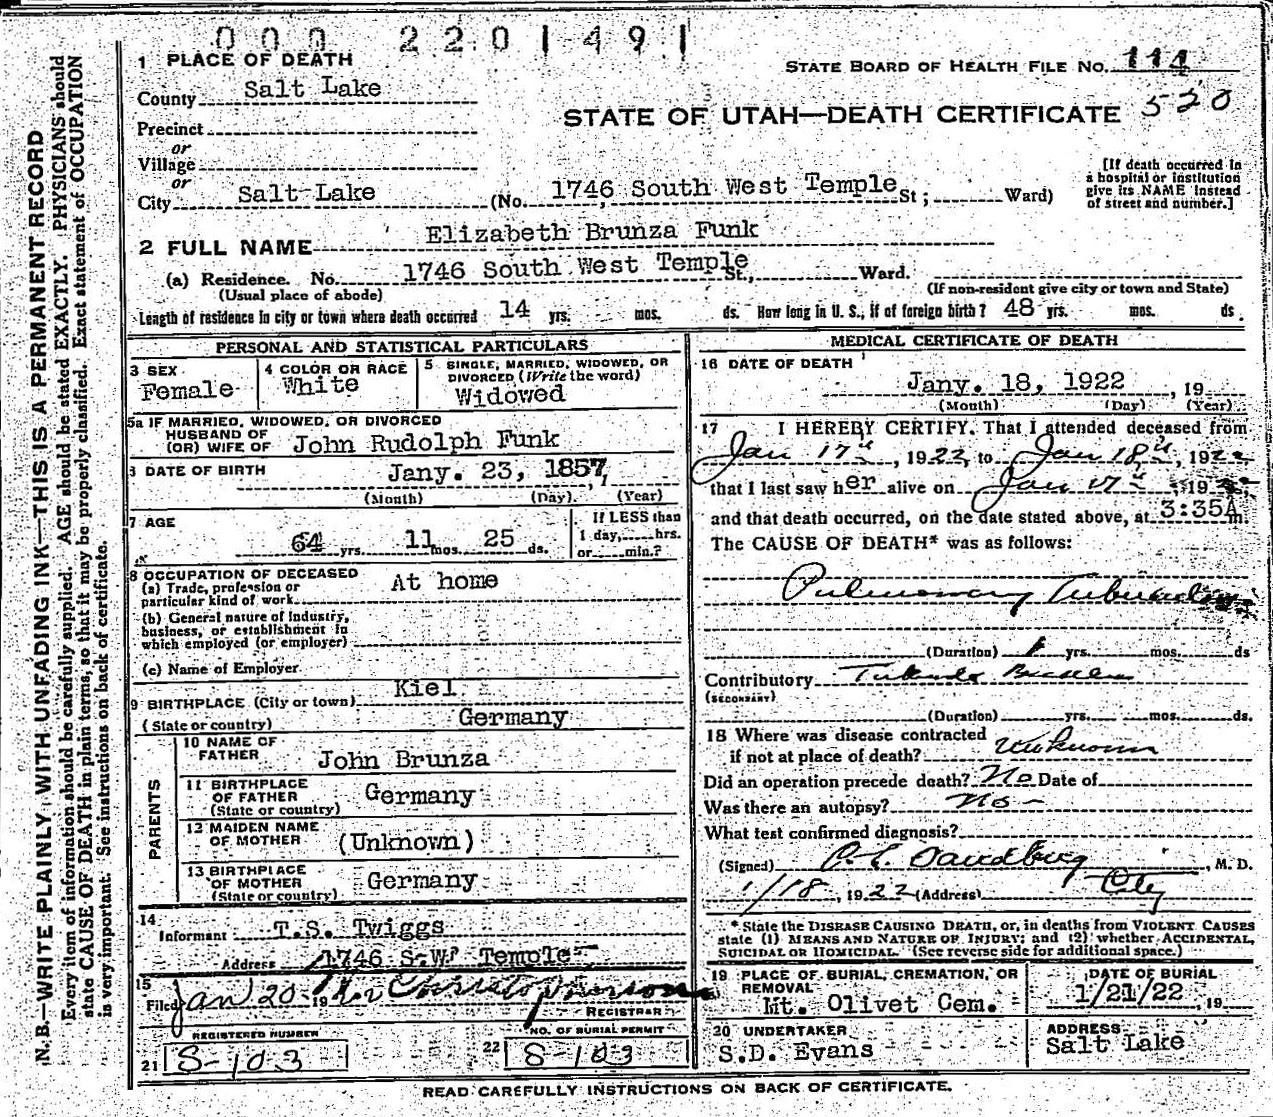 000 2201491
1 PLACE OF DEATH
STATE BOARD OF HEALTH FILE NO. 114
County Salt Lake
STATE OF UTAH—DEATH CERTIFICATE 520
Precinct
or
Village
or
City Salt Lake (No. 1746 South West Temple St; Ward)
[If death occurred in
a hospital or institution
give its NAME instead
of street and number.]
2 FULL NAME Elizabeth Brunza Funk
(a) Residence. No. 1746 South West Temple St., Ward.
(Usual place of abode) (If non-resident give city or town and State)
Length of residence in city or town where death occurred 14 yrs. mos. ds. How long in U. S., if of foreign birth? 48 yrs. mos. ds.
PERSONAL AND STATISTICAL PARTICULARS
3 SEX Female
4 COLOR OR RACE White
5 SINGLE, MARRIED, WIDOWED, OR
DIVORCED (Write the word)
Widowed
5a IF MARRIED, WIDOWED, OR DIVORCED
HUSBAND OF
(OR) WIFE OF John Rudolph Funk
6 DATE OF BIRTH Jany. 23, 1857
(Month) (Day) (Year)
7 AGE
64 yrs. 11 mos. 25 ds.
If LESS than
1 day, hrs.
or min.?
8 OCCUPATION OF DECEASED
(a) Trade, profession or
particular kind of work At home
(b) General nature of industry,
business, or establishment in
which employed (or employer)
(c) Name of Employer
9 BIRTHPLACE (City or town) Kiel
(State or country) Germany
PARENTS
10 NAME OF
FATHER John Brunza
11 BIRTHPLACE
OF FATHER
(State or country) Germany
12 MAIDEN NAME
OF MOTHER (Unknown)
13 BIRTHPLACE
OF MOTHER
(State or country) Germany
14
Informant T.S. Twiggs
Address 1746 S.W. Temple
15
Filed Jan 20 19 Christopherson
REGISTRAR
REGISTERED NUMBER
21 S-103
NO. OF BURIAL PERMIT
22 S-103
MEDICAL CERTIFICATE OF DEATH
16 DATE OF DEATH
Jany. 18, 1922, 19
(Month) (Day) (Year)
17 I HEREBY CERTIFY, That I attended deceased from
Jan 17th, 1922, to Jan 18th, 1922
that I last saw her alive on Jan 17th, 19
and that death occurred, on the date stated above, at 3:35A m.
The CAUSE OF DEATH* was as follows:
Pulmonary Tuberculosis
(Duration) 1 yrs. mos. ds
Contributory
(SECONDARY)
(Duration) yrs. mos. ds.
18 Where was disease contracted
if not at place of death? Unknown
Did an operation precede death? No Date of
Was there an autopsy? No
What test confirmed diagnosis?
(Signed) M. D.
1/18, 1922 (Address) City
* State the DISEASE CAUSING DEATH, or, in deaths from VIOLENT CAUSES
state (1) MEANS AND NATURE OF INJURY; and (2) whether ACCIDENTAL,
SUICIDAL OR HOMICIDAL. (See reverse side for additional space.)
19 PLACE OF BURIAL, CREMATION, OR
REMOVAL
Mt. Olivet Cem.
DATE OF BURIAL
1/21/22, 19
20 UNDERTAKER
S.D. Evans
ADDRESS
Salt Lake
READ CAREFULLY INSTRUCTIONS ON BACK OF CERTIFICATE.
N. B.—WRITE PLAINLY, WITH UNFADING INK—THIS IS A PERMANENT RECORD
Every item of information should be carefully supplied. AGE should be stated EXACTLY. PHYSICIANS should
state CAUSE OF DEATH in plain terms, so that it may be properly classified. Exact statement of OCCUPATION
is very important. See instructions on back of certificate.